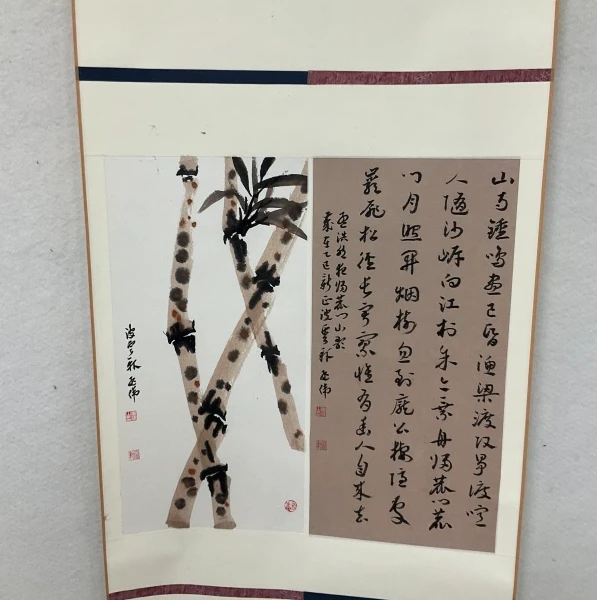 山寺鐘鳴晝已昏漁梁渡頭爭渡喧
人隨沙岸向江村余亦乘舟歸鹿門鹿
門月照開烟樹忽到龐公棲隱處
巖扉松徑長寂寥惟有幽人自來去
孟浩然夜歸鹿門山歌
歲在乙巳新正